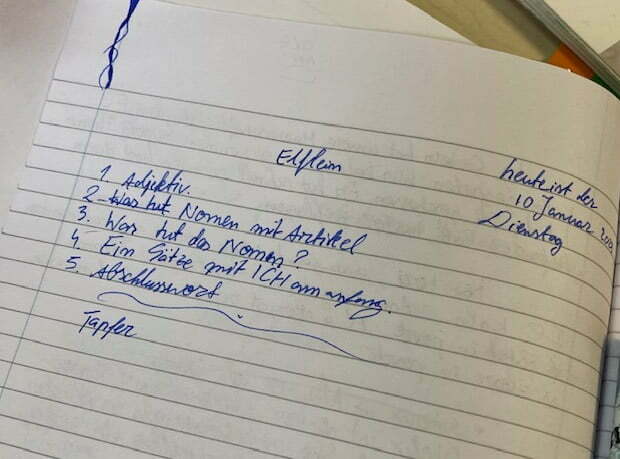 Elfleim
heute ist der
10 Januar
Dienstag
1 Adjektiv.
2 - Was tut Nomen mit Artikel
3. Was tut das Nomen?
4 - Ein Sätze mit ICH am anfang.
5. Abschlusswort
Tapfer